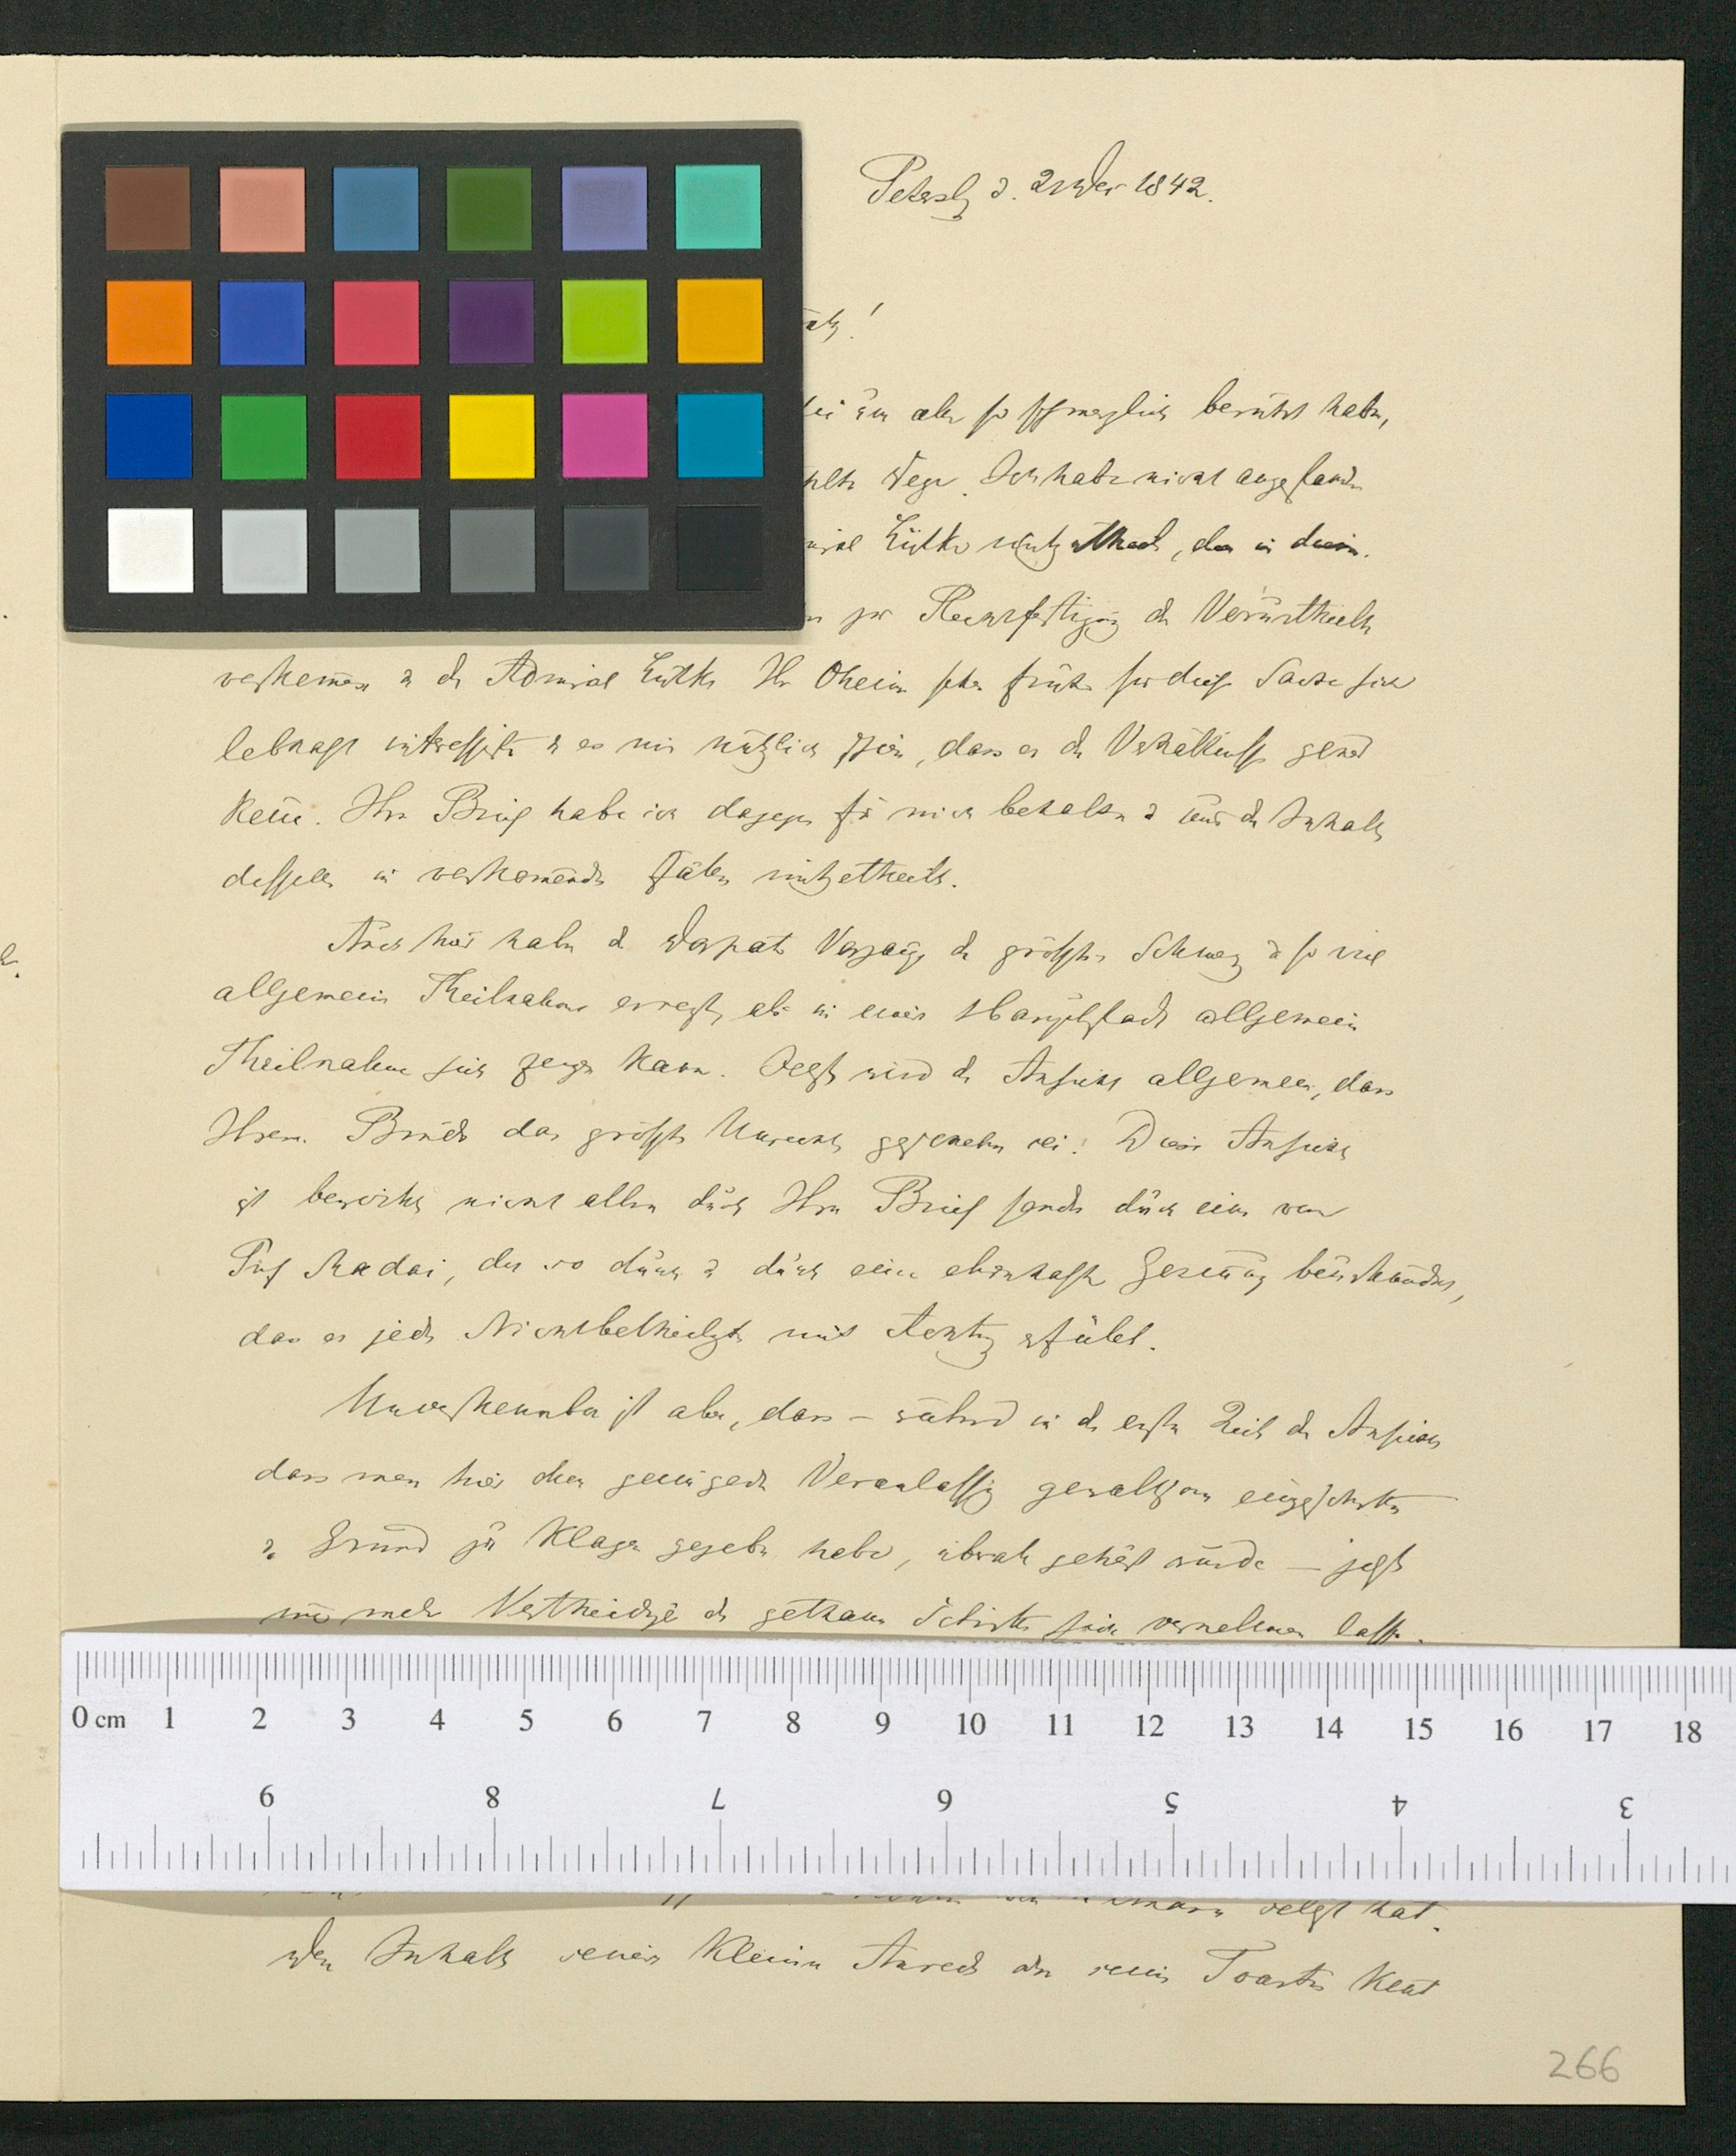 Petersb d. 2 Dec 1842.
aber so schmerzlich berührt haben,
Wege. Ich habe nicht angestanden
Lütke mitzutheilen, da in
zur Rechtfertigung der Verurtheilten
vorkommen u der Admiral Lütke Ihr Oheim schon früher für diese Sache sich
lebhaft interessirte u es mir nützlich schien, dass er die Verhältnisse genau
kenne. Ihren Brief habe ich dagegen für mich behalten u nur den Inhalt
desselben in vorkommenden Fällen mitgetheilt.
Auch hier haben die Dorpater Vorgänge den größten Schmerz u so viel
allgemeine Theilnahme erregt, als in einer Hauptstadt allgemeine
Theilnahme sich zeigen kann. Jetzt wird die Ansicht allgemein, dass
Ihrem Bruder das größte Unrecht geschehen sei. Diese Ansicht
ist bewirkt nicht allein durch Ihren Brief sondern durch einen von
Prof Madai, der so durch u durch eine ehrenhafte Gesinnung beurkundet,
das er jeden Nichtbetheiligten mit Achtung erfüllt.
Unverkennbar ist aber, dass – während in der ersten Zeit die Ansicht
dass man hier ohne genügende Veranlassung gewaltsam eingeschritten
u. Grund zu Klagen gegeben habe, überall gehört wurde – jetzt
mehr Vertheidiger der gethanen Schritte sich vernehmen lassen.
selbst hat.
Den Inhalt seiner kleinen Anrede oder seines Toastes kent
0 cm 1 2 3 4 5 6 7 8 9 10 11 12 13 14 15 16 17 18
9 8 7 6 5 4 3
266